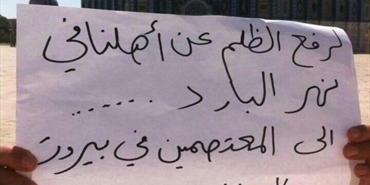 لرفع الظلم عن أهلنا في
نهر البارد .......
الى المعتصمين في بيروت